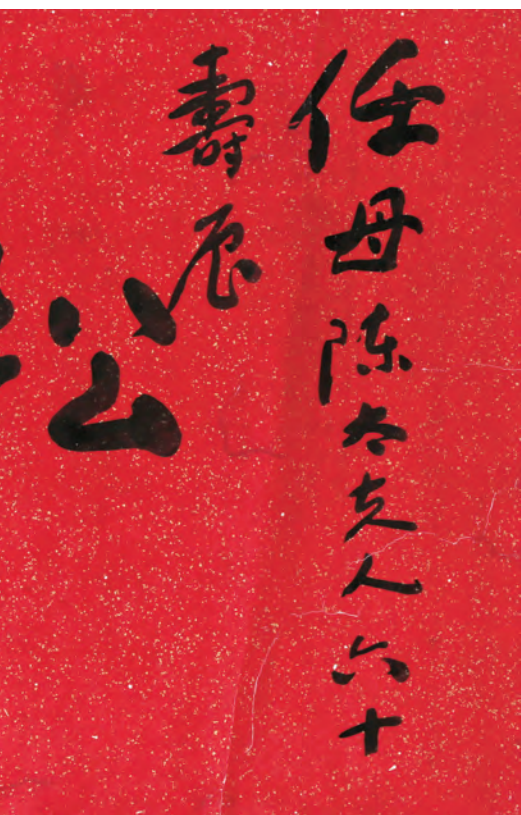 任母陈太夫人六十
壽辰